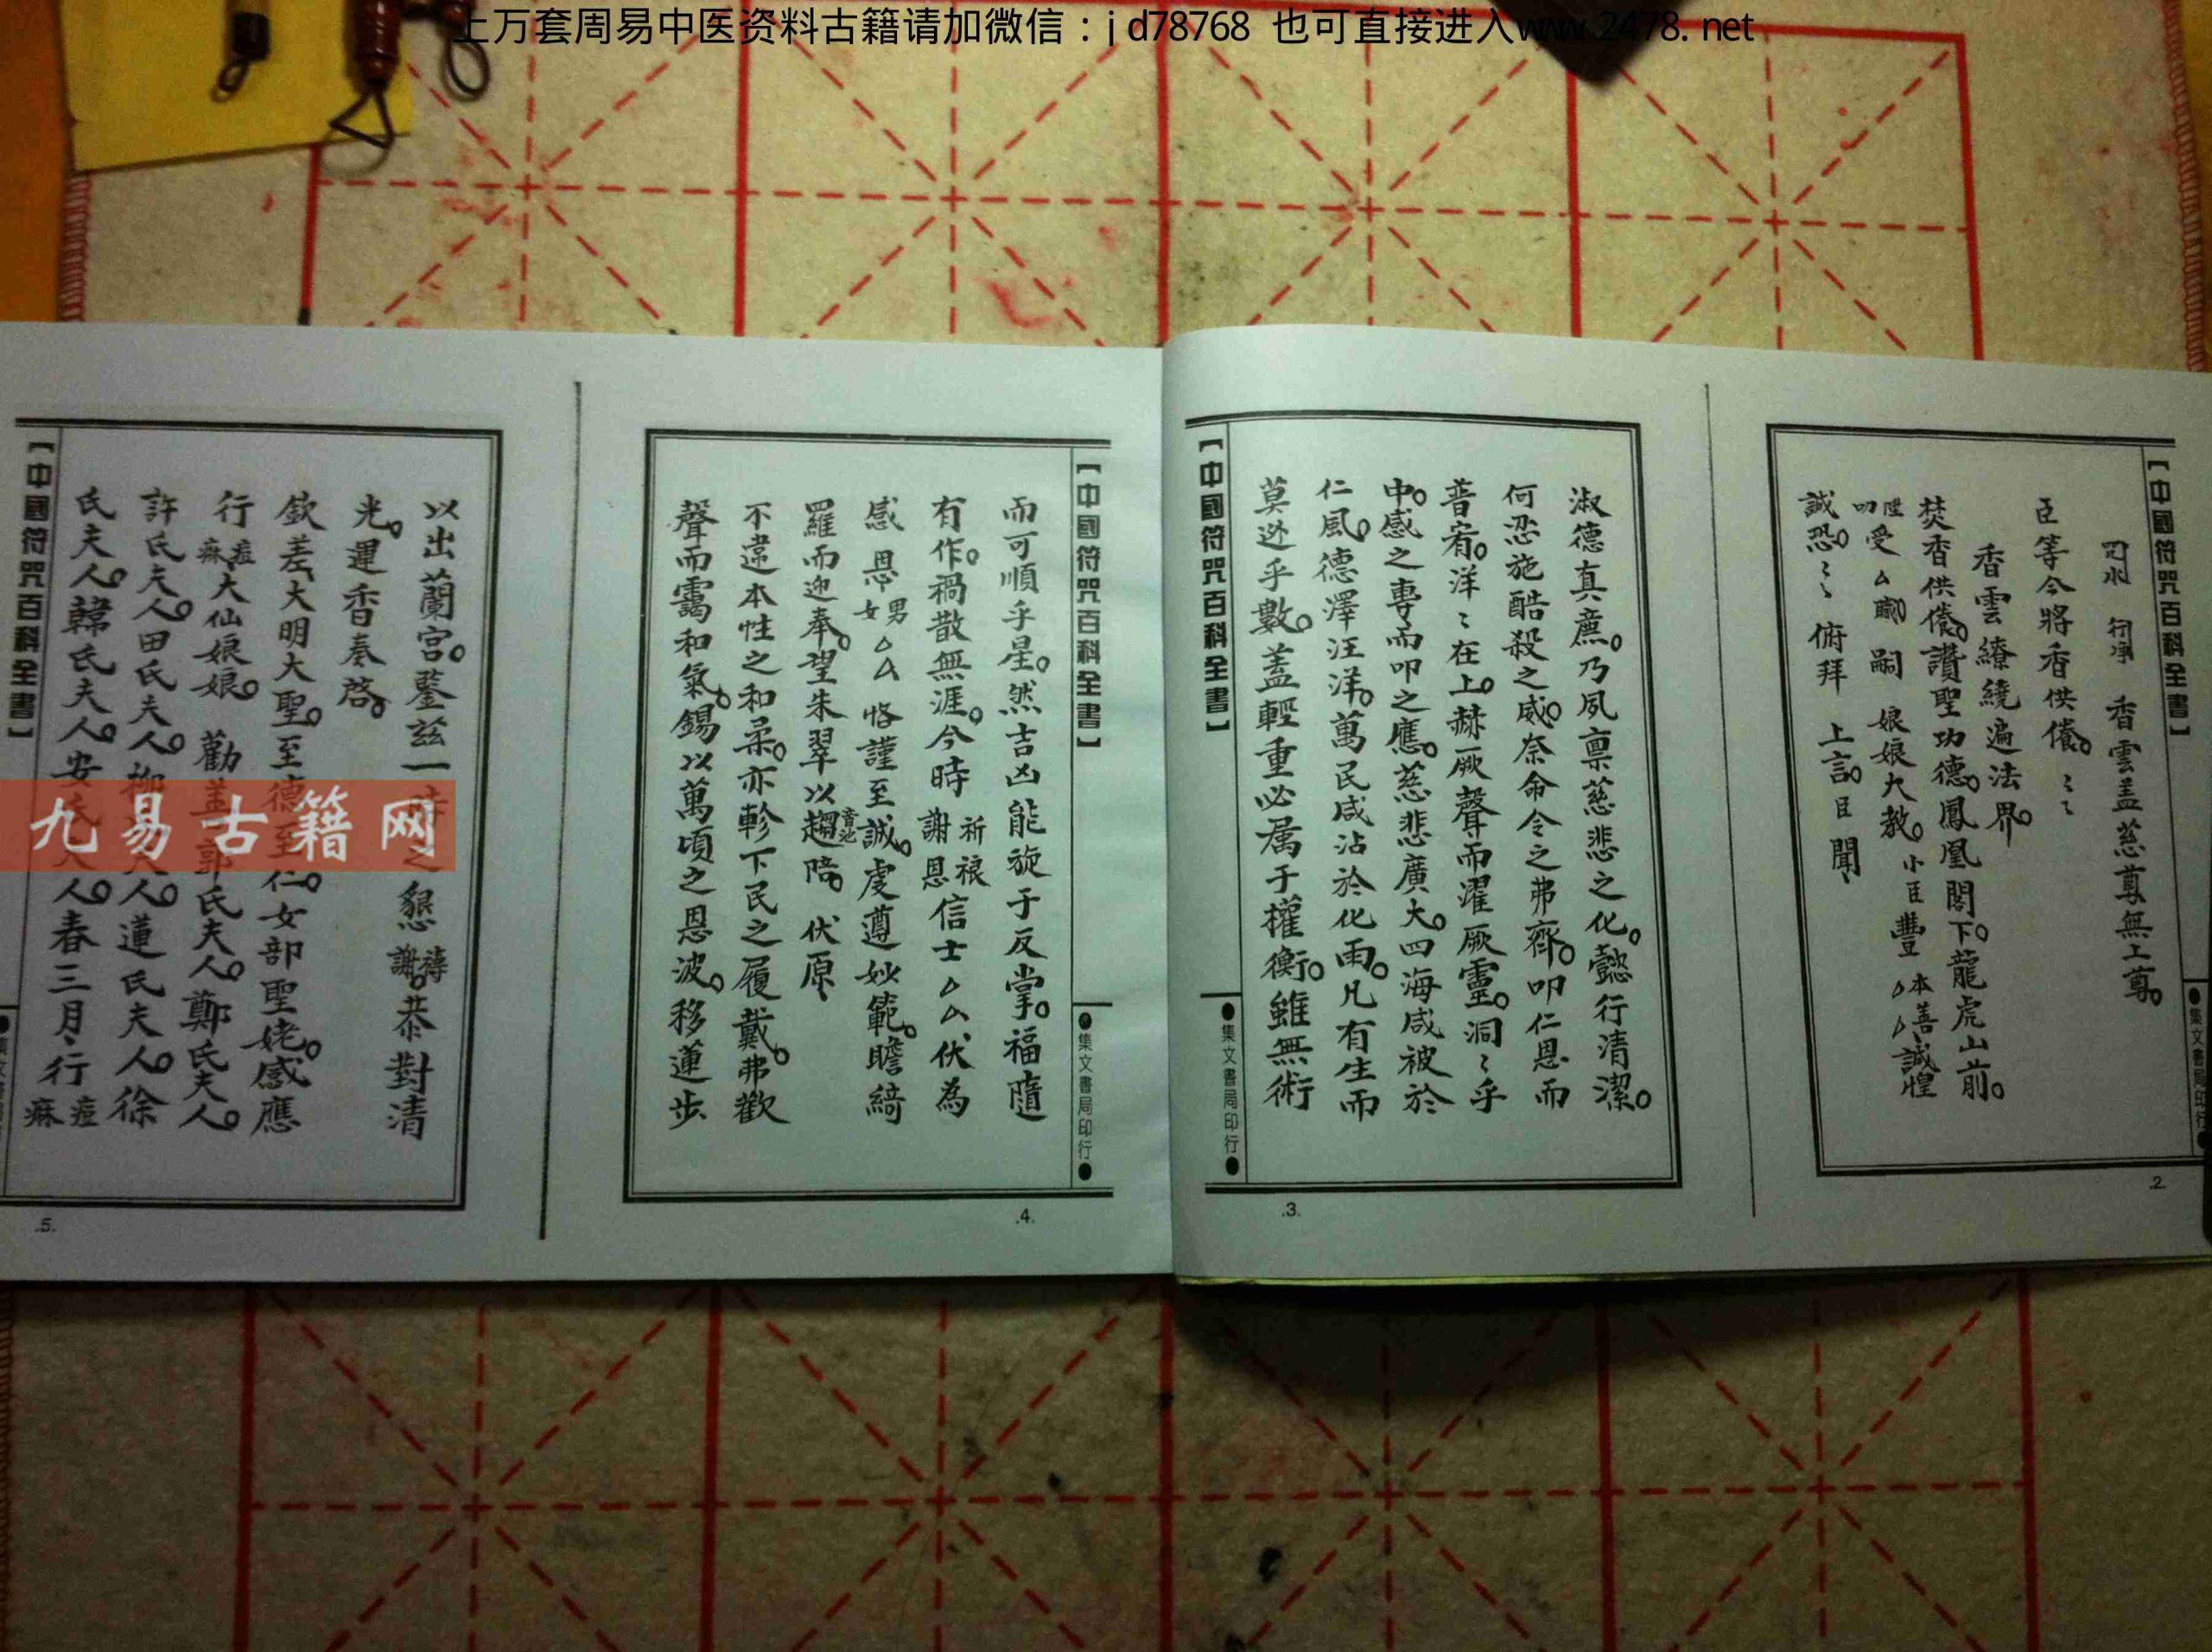 上万套周易中医资料古籍请加微信：jd78768 也可直接进入www.2478.net
【中國符咒百科全書】
集文書局印行
香雲盖慈尊無上尊。
臣等今將香供養。〻〻
香雲繚繞遍法界。
焚香供養。讚聖功德。鳳凰閣下。龍虎山前。
叨陞受厶職 嗣 娘娘大教。小臣豐厶厶本善誠惶
誠恐。〻〻俯拜 上言。臣聞、
.2.
淑德真應。乃夙禀慈悲之化。懿行清潔。
何忍施酷殺之威。奈命令之弗齊。叩仁恩而
普宥。洋〻在上。赫厥聲而濯厥靈。洞〻乎
中。感之專而叩之應。慈悲廣大。四海咸被於
仁風。德澤汪洋。萬民咸沾於化雨。凡有生而
莫逃乎數。蓋輕重必属于權衡。雖無術
【中國符咒百科全書】
集文書局印行
.3.
【中國符咒百科全書】
集文書局印行
而可順乎星。然吉凶能旋于反掌。福隨
有作。禍散無涯。今時 祈禳謝恩信士厶厶伏為
感恩男女厶厶恪謹至誠。虔遵妙範。瞻綺
羅而迎奉。望朱翠以趨陪。伏原、
不違本性之和柔。亦軫下民之履戴。弗歡
聲而靄和氣。錫以萬頃之恩波。移蓮步
.4.
以出蘭宮。鑒茲一時之懇禱謝。恭對清
光。運香奏啓。
欽差、大明大聖。至德至仁。女部聖姥。感應
行痘痳大仙娘娘。勸善郭氏夫人。鄭氏夫人。
許氏夫人。田氏夫人。柳氏夫人。蓮氏夫人。徐
氏夫人。韓氏夫人。安氏夫人。春三月、行痘痳
【中國符咒百科全書】
.5.
九易古籍网